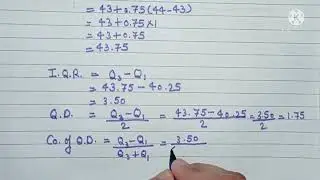 = 43+0.75(44-43)
= 43+0.75×1
= 43+0.75
= 43.75
I.Q.R. = Q₃-Q₁
= 43.75-40.25
= 3.50
Q.D. = Q₃-Q₁/2 = 43.75-40.25/2 = 3.50/2 = 1.75
Co. of Q.D. = Q₃-Q₁/Q₃+Q₁ = 3.50/